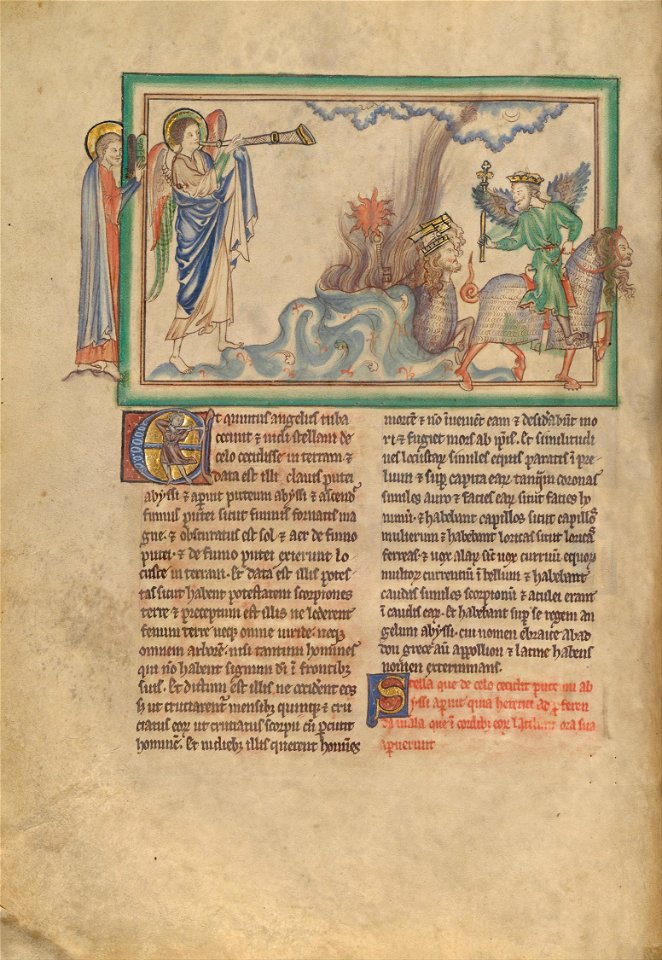 Et quintus angelus tuba
cecinit & uidi stellam de
celo cecidisse in terram &
data est illi clauis putei
abyssi & aperuit puteum abyssi & ascend
fumus putei sicut fumus fornacis ma
gne. & obscuratus est sol. & aer de fumo
putei. & de fumo putei exierunt lo
custe in terram. Et data est illis potes
tas sicut habent potestatem scorpiones
terre & preceptum est illis ne lederent
fenum terre neq; omne uiride. neq;
omnem arborē. nisi tantum homines
qui nō habent signum dī ī frontib;
suis. Et dictum est illis ne occident eos
s; ut cruciarent mensibus quinq; & cru
ciatus eoꝝ ut cruciatus scorpii cū ꝑcutit
hominē. Et in dieb; illis querent hoīes
mortē & nō īuenient eam & desidabunt mo
ri & fugiet mors ab ip̄is. Et similitudi
nes locustaꝝ similes equis paratis ī pre
lium & suꝑ capita eaꝝ tanquā coronas
similes auro & facies eaꝝ sicut facies ho
minū. & habebant capillos sicut capillos
mulierum & habebant loricas sicut loricas
ferreas & uox alaꝝ sicut uox curruū equoꝝ
multoꝝ currentiū ī bellum & habebant
caudas similes scorpionū & aculei erant
ī caudis eaꝝ. Et habebant suꝑ se regem an
gelum abyssi. cui nomen ebraice abad
don grece aū appollion & latine habens
nomen exterminans.
Stella que de celo cecidit puteū ab
yssi aꝑuit quia heretici ad ꝓferen
da mala que ī cordib; eoꝝ latitant ora sua
aperuerunt